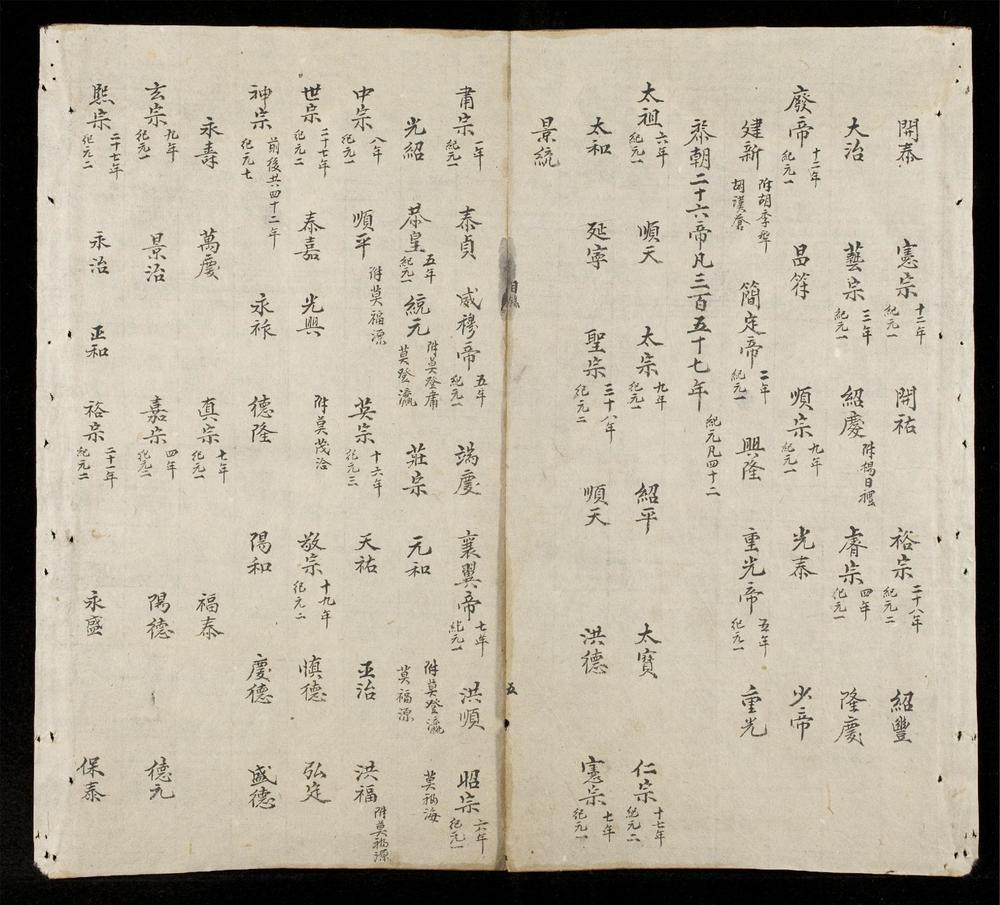 開泰 憲宗 十二年 紀元一 開祐 裕宗 二十八年 紀元二 紹豐
大治 藝宗 三年 紀元一 紹慶 附楊日禮 睿宗 四年 紀元一 隆慶
廢帝 十二年 紀元一 昌符 順宗 九年 紀元一 光泰 少帝
建新 附胡季犛 胡漢蒼 簡定帝 二年 紀元一 興隆 重光帝 五年 紀元一 重光
黎朝二十六帝凡三百五十七年 紀元凡四十二
太祖 六年 紀元一 順天 太宗 九年 紀元一 紹平 太寶 仁宗 十七年 紀元二
太和 延寧 聖宗 三十八年 紀元二 順天 洪德 憲宗 七年 紀元一
景統
目錄 五
肅宗 一年 紀元一 泰貞 威穆帝 五年 紀元一 端慶 襄翼帝 七年 紀元一 洪順 昭宗 六年 紀元一
光紹 恭皇 五年 紀元一 統元 附莫登庸 莫登瀛 莊宗 元和 附莫登瀛 莫福源 莫福海
中宗 八年 紀元一 順平 附莫福源 英宗 十六年 紀元三 天祐 正治 洪福 附莫福源
世宗 二十七年 紀元二 泰嘉 光興 附莫茂洽 敬宗 十九年 紀元二 慎德 弘定
神宗 前後共四十二年 紀元七 永祚 德隆 陽和 慶德 盛德
永壽 萬慶 真宗 七年 紀元一 福泰
玄宗 九年 紀元一 景治 嘉宗 四年 紀元二 陽德 德元
熙宗 二十七年 紀元二 永治 正和 裕宗 二十一年 紀元二 永盛 保泰